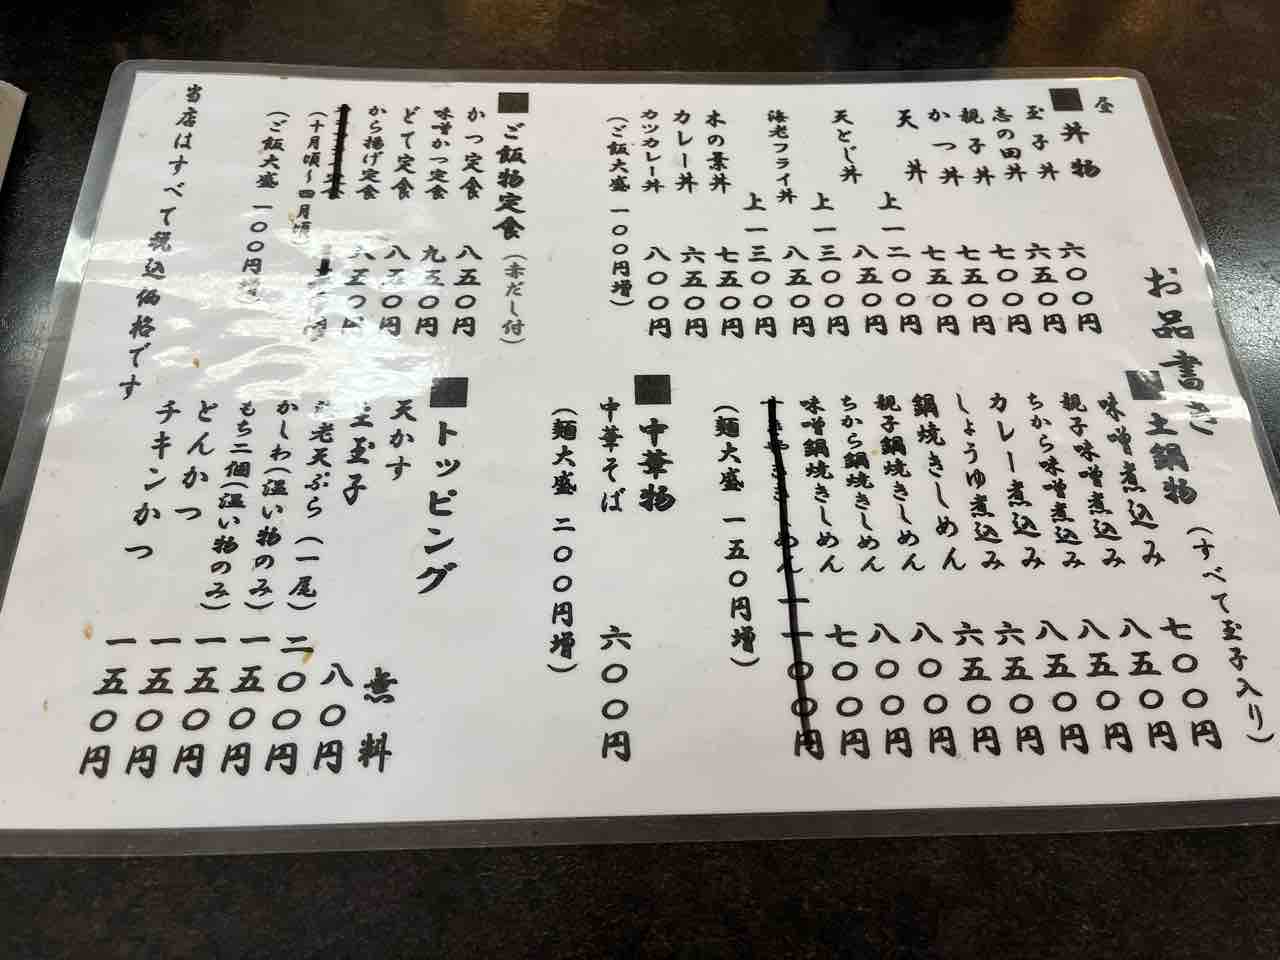 お品書き
屋
■丼物
玉子丼 六〇〇円
志の田丼 六五〇円
親子丼 七〇〇円
かつ丼 七五〇円
天丼 七五〇円
上一二〇〇円
天とじ丼 八五〇円
上一三〇〇円
海老フライ丼 八五〇円
上一三〇〇円
木の葉丼 七五〇円
カレー丼 六五〇円
カツカレー丼 八〇〇円
(ご飯大盛 一〇〇円増)
■ご飯物定食(赤だし付)
かつ定食 八五〇円
味噌かつ定食 九五〇円
どて定食 八五〇円
から揚げ定食 六五〇円
(十月頃〜四月頃)
(ご飯大盛 一〇〇円増)
当店はすべて税込価格です
■土鍋物(すべて玉子入り)
味噌煮込み 七〇〇円
親子味噌煮込み 八五〇円
ちから味噌煮込み 八五〇円
カレー煮込み 八五〇円
しょうゆ煮込み 六五〇円
鍋焼きしめん 六五〇円
親子鍋焼きしめん 八〇〇円
ちから鍋焼きしめん 八〇〇円
味噌鍋焼きしめん 七〇〇円
しめん 一一〇〇円
(麺大盛 一五〇円増)
■中華物
中華そば 六〇〇円
(麺大盛 二〇〇円増)
■トッピング
天かす 無料
生玉子 八〇円
海老天ぷら(一尾) 二〇〇円
かしわ(温い物のみ) 一五〇円
もち二個(温い物のみ) 一五〇円
とんかつ 一五〇円
チキンかつ 一五〇円